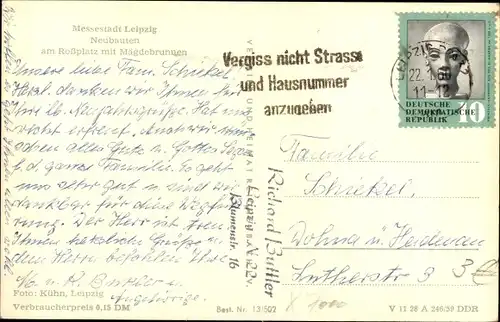 Messestadt Leipzig
Neubauten
am Roßplatz mit Mägdebrunnen
Unsere liebe Fam. Schiekel.
Herzl. danken wir Ihnen für
Ihre lb. Neujahrsgrüße. Hat uns
recht erfreut. Auch wir wün
den alles Gute u. Gottes Segen
f. d. ganze Familie. Es geht
uns allen gut u. sind wir
dankbar für diese Wegfüh
rung. Der Herr ist treu.
Ihnen herzliche Grüße u.
dem Herrn befohlen Ihre
u. Angehörige.
Foto: Kühn, Leipzig
Verbraucherpreis 0,15 DM
Best. Nr. 13/502
Richard Buttler
Leipzig N 22
Blumenstr. 16
Vergiss nicht Strasse
und Hausnummer
anzugeben
22.1.60
11-12
DEUTSCHE
DEMOKRATISCHE
REPUBLIK
10
Familie
Schiekel,
Dohna ü/Heidenau
Lutherstr 3
3€
V 11 28 A 248/59 DDR